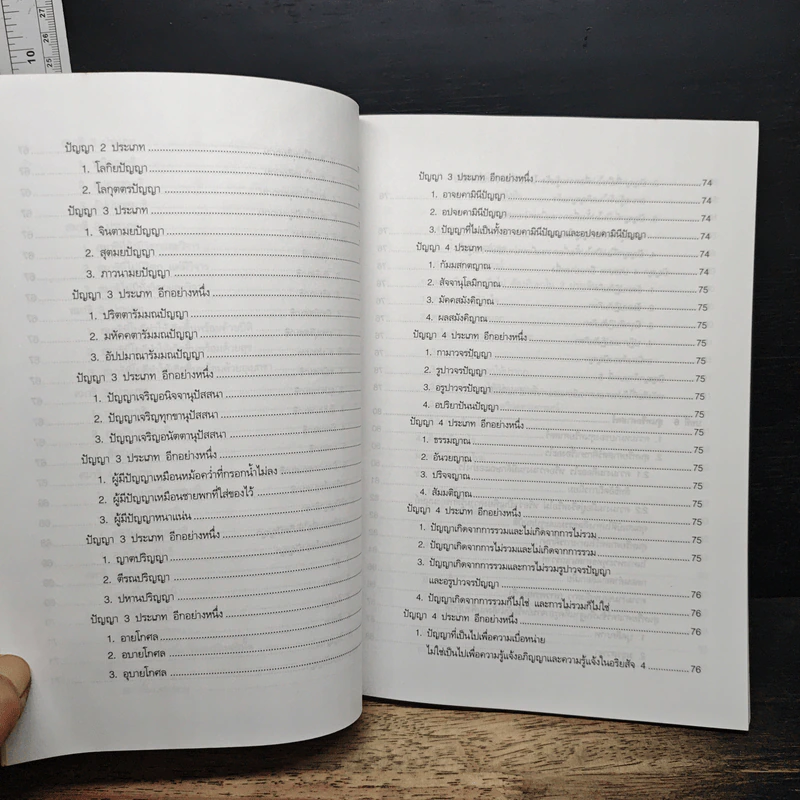 ปัญญา 2 ประเภท
1. โลกิยปัญญา
2. โลกุตตรปัญญา
ปัญญา 3 ประเภท
1. จินตามยปัญญา
2. สุตมยปัญญา
3. ภาวนามยปัญญา
ปัญญา 3 ประเภท อีกอย่างหนึ่ง
1. ปริตตารัมมณปัญญา
2. มหัคคตารัมมณปัญญา
3. อัปปมาณารัมมณปัญญา
ปัญญา 3 ประเภท อีกอย่างหนึ่ง
1. ปัญญาเจริญอนิจจานุปัสสนา
2. ปัญญาเจริญทุกขานุปัสสนา
3. ปัญญาเจริญอนัตตานุปัสสนา
ปัญญา 3 ประเภท อีกอย่างหนึ่ง
1. ผู้มีปัญญาเหมือนหม้อคว่ำที่กรอกน้ำไม่ลง
2. ผู้มีปัญญาเหมือนชายพกที่ใส่ของไว้
3. ผู้มีปัญญาหนาแน่น
ปัญญา 3 ประเภท อีกอย่างหนึ่ง
1. ญาตปริญญา
2. ตีรณปริญญา
3. ปหานปริญญา
ปัญญา 3 ประเภท อีกอย่างหนึ่ง
1. อายโกศล
2. อบายโกศล
3. อุบายโกศล
ปัญญา 3 ประเภท อีกอย่างหนึ่ง 74
1. อาจยคามินีปัญญา 74
2. อปจยคามินีปัญญา 74
3. ปัญญาที่ไม่เป็นทั้งอาจยคามินีปัญญาและอปจยคามินีปัญญา 74
ปัญญา 4 ประเภท 74
1. กัมมสกตญาณ 74
2. สัจจานุโลมิกญาณ 75
3. มัคคสมังคิญาณ 75
4. ผลสมังคิญาณ 75
ปัญญา 4 ประเภท อีกอย่างหนึ่ง 75
1. กามาวจรปัญญา 75
2. รูปาวจรปัญญา 75
3. อรูปาวจรปัญญา 75
4. อปริยาปันนปัญญา 75
ปัญญา 4 ประเภท อีกอย่างหนึ่ง 75
1. ธรรมญาณ 75
2. อันวยญาณ 75
3. ปริจจญาณ 75
4. สัมมติญาณ 75
ปัญญา 4 ประเภท อีกอย่างหนึ่ง 75
1. ปัญญาเกิดจากการรวมและไม่เกิดจากการไม่รวม 75
2. ปัญญาเกิดจากการไม่รวมและไม่เกิดจากการรวม 75
3. ปัญญาเกิดจากการรวมและการไม่รวมรูปาวจรปัญญา
และอรูปาวจรปัญญา 76
4. ปัญญาเกิดจากการรวมก็ไม่ใช่ และการไม่รวมก็ไม่ใช่ 76
ปัญญา 4 ประเภท อีกอย่างหนึ่ง 76
1. ปัญญาที่เป็นไปเพื่อความเบื่อหน่าย
ไม่ใช่เป็นไปเพื่อความรู้แจ้งอภิญญาและความรู้แจ้งในอริยสัจ 4 76
10
27
26
25